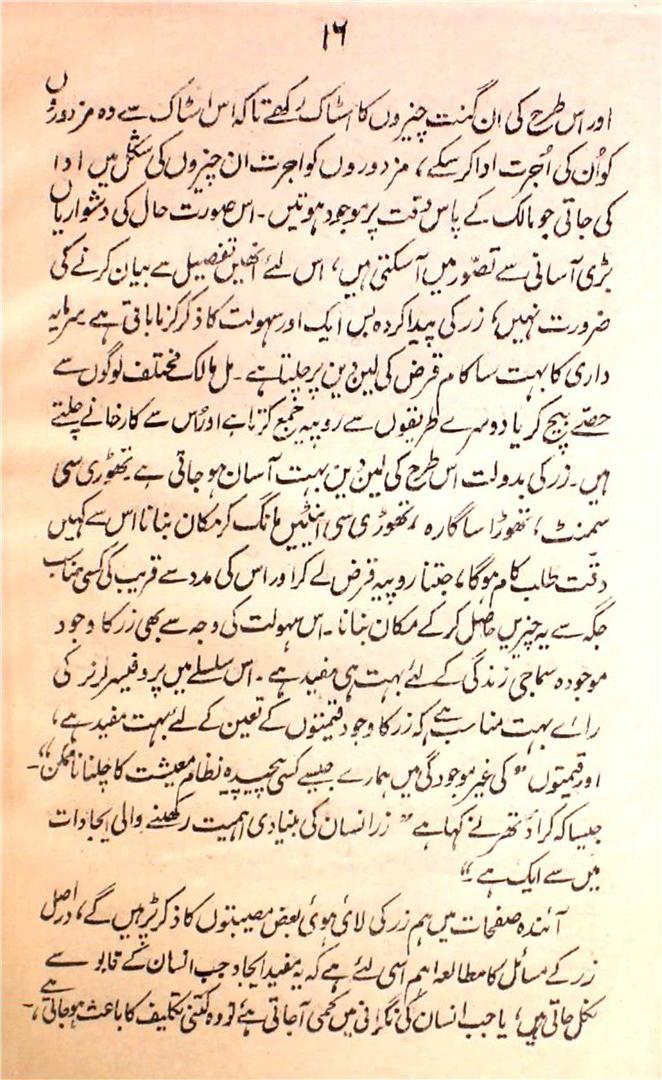 ۱۶
اور اس طرح کی ان گنت چیزوں کا اسٹاک رکھے تاکہ اس اسٹاک سے وہ مزدوروں
کو اُن کی اُجرت ادا کر سکے، مزدوروں کو اجرت ان چیزوں کی شکل میں ادا
کی جاتی جو مالک کے پاس وقت پر موجود ہوتیں۔ اس صورت حال کی دشواریاں
بڑی آسانی سے تصوّر میں آسکتی ہیں، اس لئے انھیں تفصیل سے بیان کرنے کی
ضرورت نہیں، زر کی پیدا کردہ بس ایک اور سہولت کا ذکر کرنا باقی ہے۔ سرمایہ
داری کا بہت سا کام قرض کی لین دین پر چلتا ہے۔ مل مالک مختلف لوگوں سے
حصّے بیچ کر یا دوسرے طریقوں سے روپیہ جمع کرتا ہے اور اُس سے کارخانے چلتے
ہیں۔ زر کی بدولت اس طرح کی لین دین بہت آسان ہو جاتی ہے۔ تھوڑی سی
سمنٹ، تھوڑا سا گارہ، تھوڑی سی اینٹیں مانگ کر مکان بنانا اس سے کہیں
دقّت طلب کام ہوگا، جتنا روپیہ قرض لے کر اور اس کی مدد سے قریب کی کسی مناسب
جگہ سے یہ چیزیں حاصل کر کے مکان بنانا۔ اس سہولت کی وجہ سے بھی زر کا وجود
موجودہ سماجی زندگی کے لئے بہت ہی مفید ہے۔ اس سلسلے میں پروفیسر لرنر کی
رائے بہت مناسب ہے کہ زر کا وجود قیمتوں کے تعین کے لئے بہت مفید ہے،
اور قیمتوں "کی غیر موجودگی میں ہمارے جیسے کسی پیچیدہ نظام معیشت کا چلنا نا ممکن"۔
جیسا کہ کراؤتھر نے کہا ہے "زر انسان کی بنیادی اہمیت رکھنے والی ایجادات
میں سے ایک ہے۔"
آئندہ صفحات میں ہم زر کی لائی ہوئی بعض مصیبتوں کا ذکر پڑہیں گے، در اصل
زر کے مسائل کا مطالعہ اہم اسی لئے ہے کہ یہ مفید ایجاد جب انسان کے قابو سے
نکل جاتی ہیں، یا جب انسان کی نگرانی میں کمی آجاتی ہے تو وہ کتنی تکلیف کا باعث ہو جاتی ہے۔